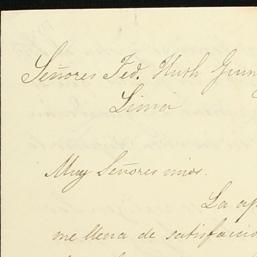 Señores Fed. Huth Grun
Lima
Muy Señores mios.
La ap
me llena de satisfacció